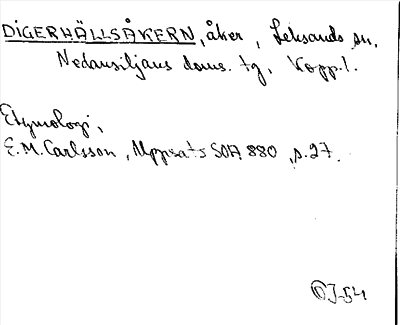 DIGERHÄLLSÅKERN, åker, Leksands sn.
Nedansiljans doms. tg, Kopp. l.
Etymologi,
E.M. Carlsson, Uppsats SOA 880, s. 27.
OJ-54